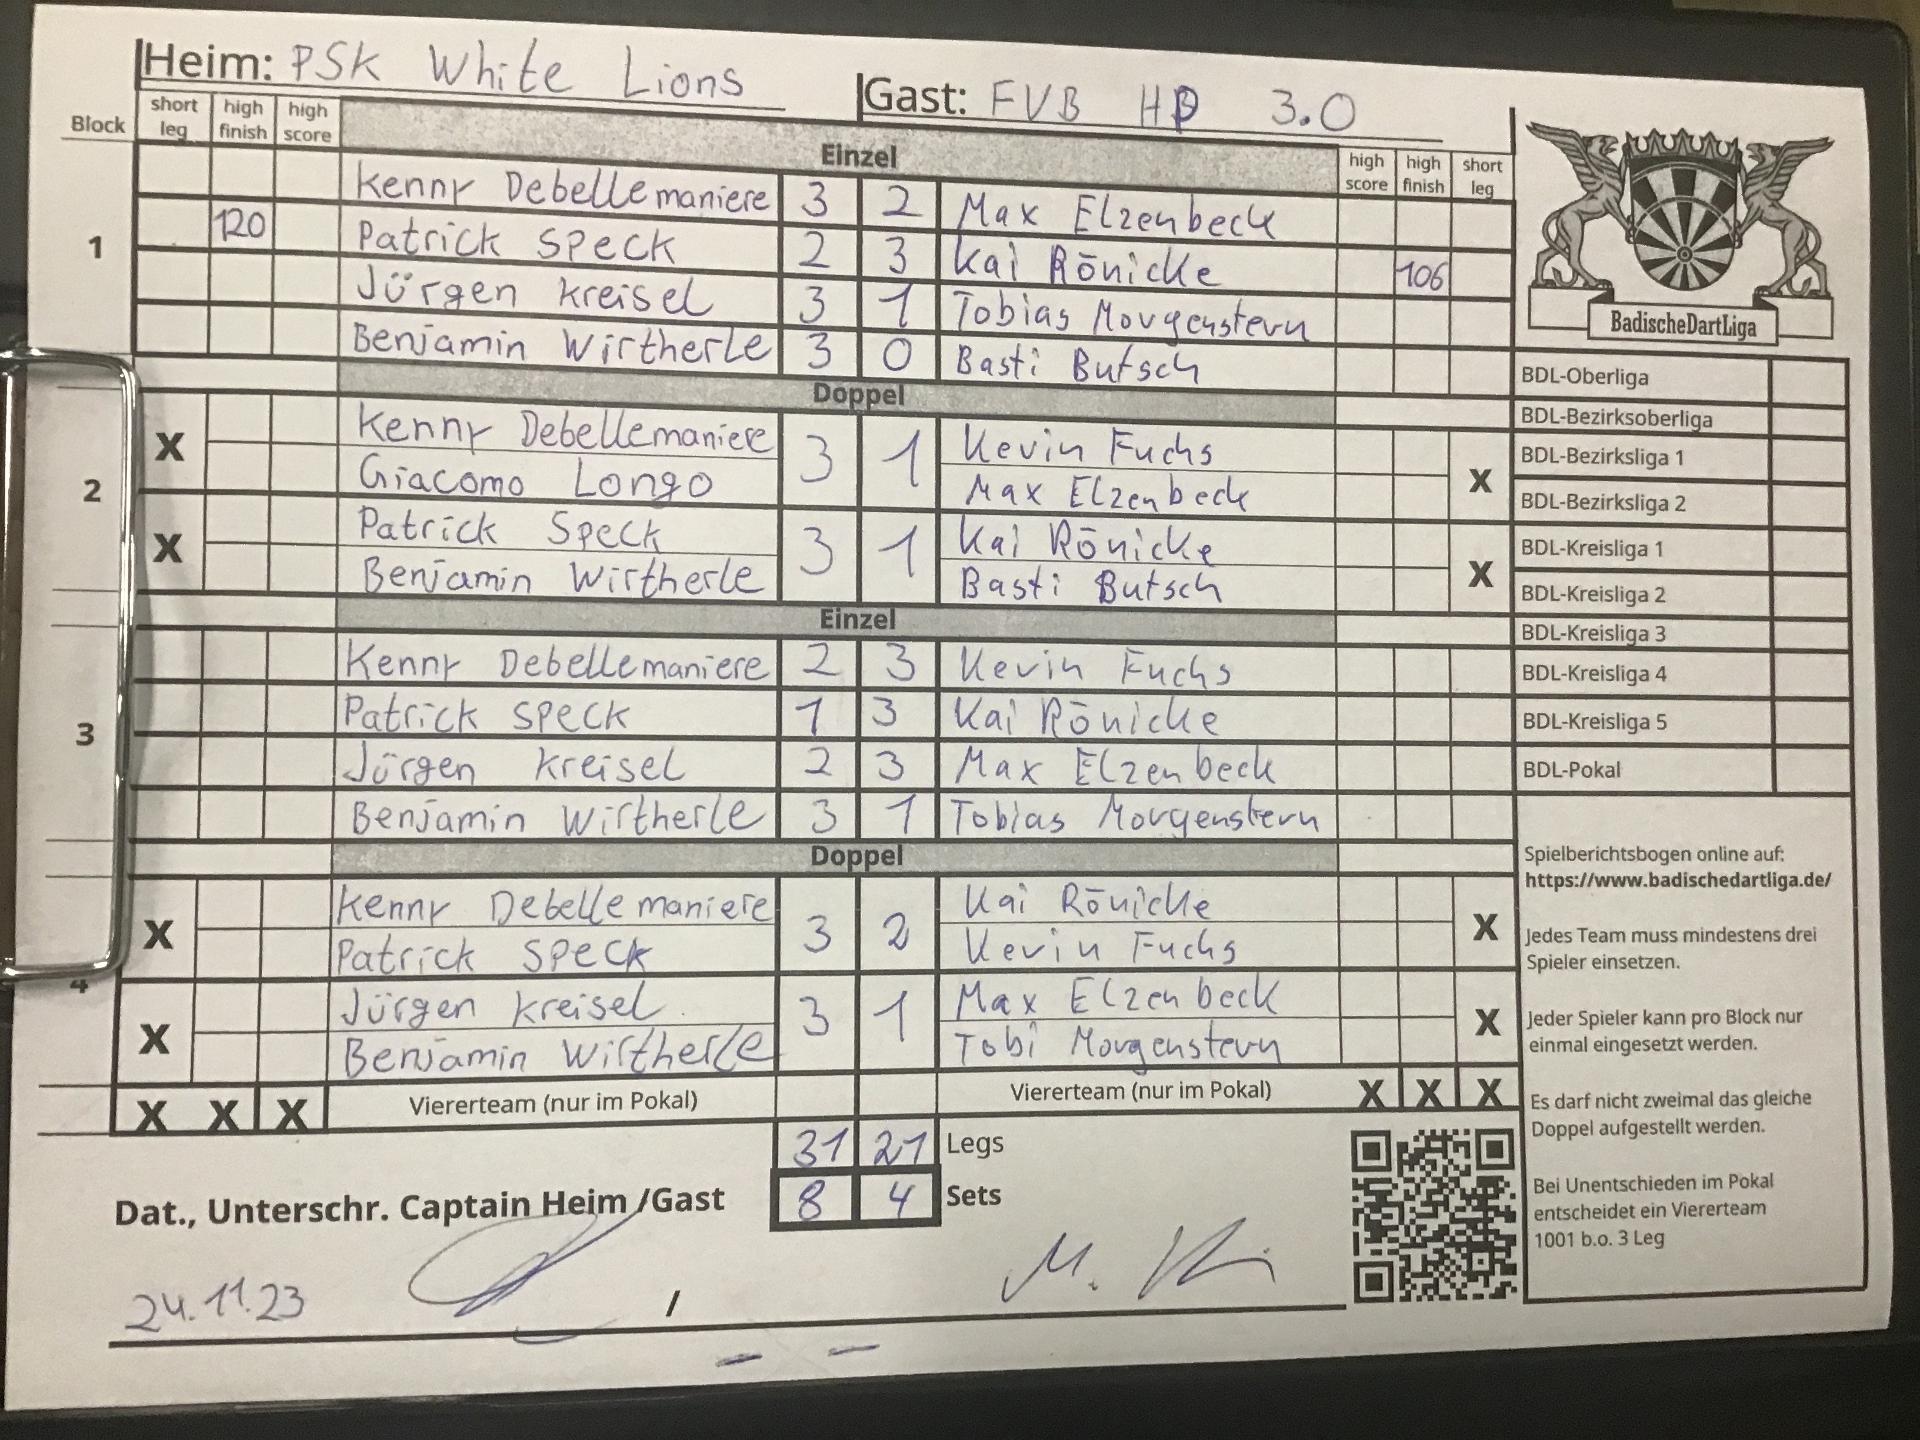 Heim: PSK White Lions Gast: FVB HB 3.0
Block short leg high finish high score Einzel high score high finish short leg
1
Kenny Debellemaniere 3 2 Max Elzenbeck
120 Patrick Speck 2 3 Kai Rönicke 106
Jürgen Kreisel 3 1 Tobias Morgenstern
Benjamin Wirtherle 3 0 Basti Butsch
Doppel
2
X Kenny Debellemaniere 3 1 Kevin Fuchs X
Giacomo Longo Max Elzenbeck
X Patrick Speck 3 1 Kai Rönicke X
Benjamin Wirtherle Basti Butsch
Einzel
3
Kenny Debellemaniere 2 3 Kevin Fuchs
Patrick Speck 1 3 Kai Rönicke
Jürgen Kreisel 2 3 Max Elzenbeck
Benjamin Wirtherle 3 1 Tobias Morgenstern
Doppel
4
X Kenny Debellemaniere 3 2 Kai Rönicke X
Patrick Speck Kevin Fuchs
X Jürgen Kreisel 3 1 Max Elzenbeck X
Benjamin Wirtherle Tobi Morgenstern
X X X Viererteam (nur im Pokal) Viererteam (nur im Pokal) X X X
31 21 Legs
8 4 Sets
Dat., Unterschr. Captain Heim /Gast
24.11.23 / M.
BadischeDartLiga
BDL-Oberliga
BDL-Bezirksoberliga
BDL-Bezirksliga 1
BDL-Bezirksliga 2
BDL-Kreisliga 1
BDL-Kreisliga 2
BDL-Kreisliga 3
BDL-Kreisliga 4
BDL-Kreisliga 5
BDL-Pokal
Spielberichtsbogen online auf:
https://www.badischedartliga.de/
Jedes Team muss mindestens drei
Spieler einsetzen.
Jeder Spieler kann pro Block nur
einmal eingesetzt werden.
Es darf nicht zweimal das gleiche
Doppel aufgestellt werden.
Bei Unentschieden im Pokal
entscheidet ein Viererteam
1001 b.o. 3 Leg